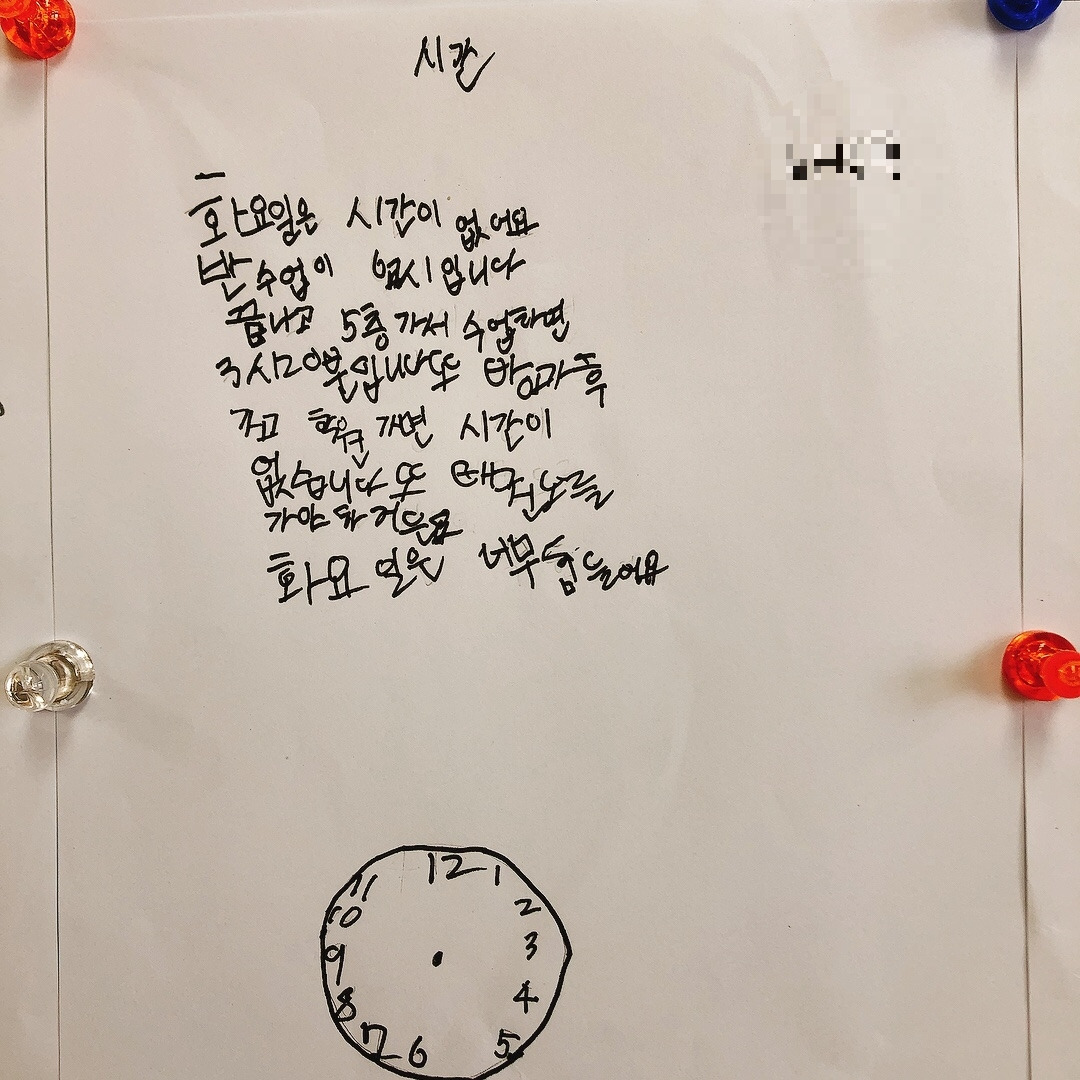 시간
화요일은 시간이 없어요
반 수업이 입니다
끝나고 5층 가서 수업하면
3시20분입니다 또 방과후
하고 학원 가면 시간이
없습니다 또 태권도를
가야 하거든요
화요일은 너무 힘들어요
12
1
2
3
4
5
6
7
8
9
10
11